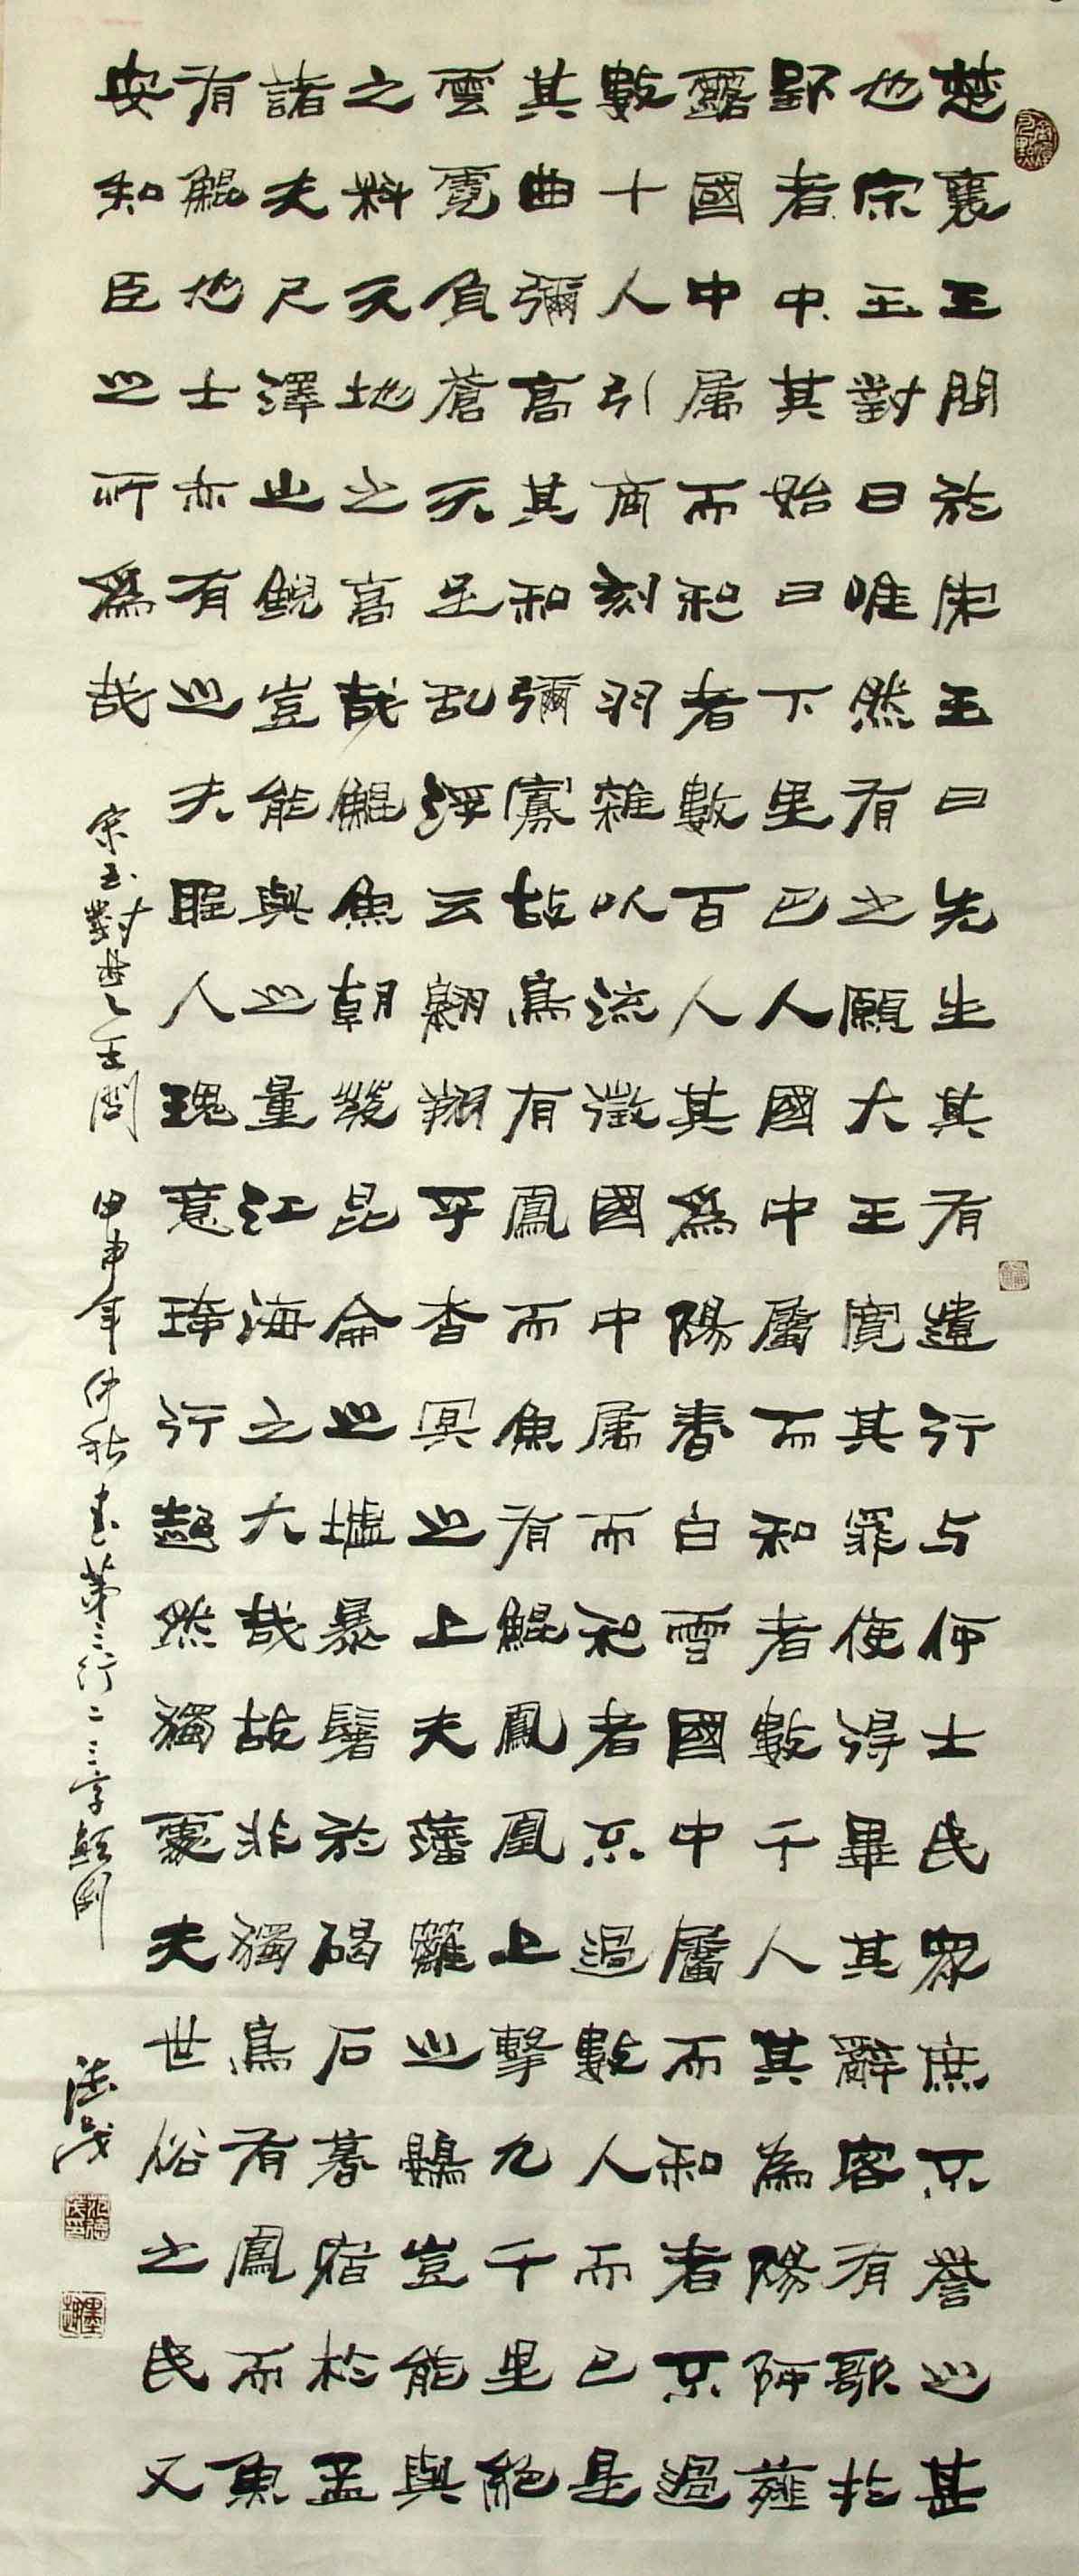 楚襄王問於宋玉曰先生其有遺行与何士民眾庶不譽之甚
也宋玉對曰唯然有之願大王寬其罪使得畢其辭客有歌扵
郢者中其始曰下里巴人國中屬而和者數千人其為陽阿薤
露國中属而和者數百人其爲陽春白雪國中屬而和者不過
數十人引商刻羽雜以流徵國中属而和者不過數人而已是
其曲彌高其和彌寡故鳥有鳳而魚有鯤鳳凰上擊九千里絕
雲霓負蒼天足乱浮云翱翔乎杳冥之上夫藩籬之鷃豈能與
之料天地之高哉鯤魚朝發昆侖之墟暴鬐於碣石暮宿扵孟
諸夫尺澤之鯢豈能與之量江海之大哉故非獨鳥有鳳而魚
有鯤也士亦有之夫聖人瑰意琦行超然獨處夫世俗之民又
安知臣之所爲哉
宋玉對楚王問 甲申年仲秋書第三行二三字顛倒
德茂